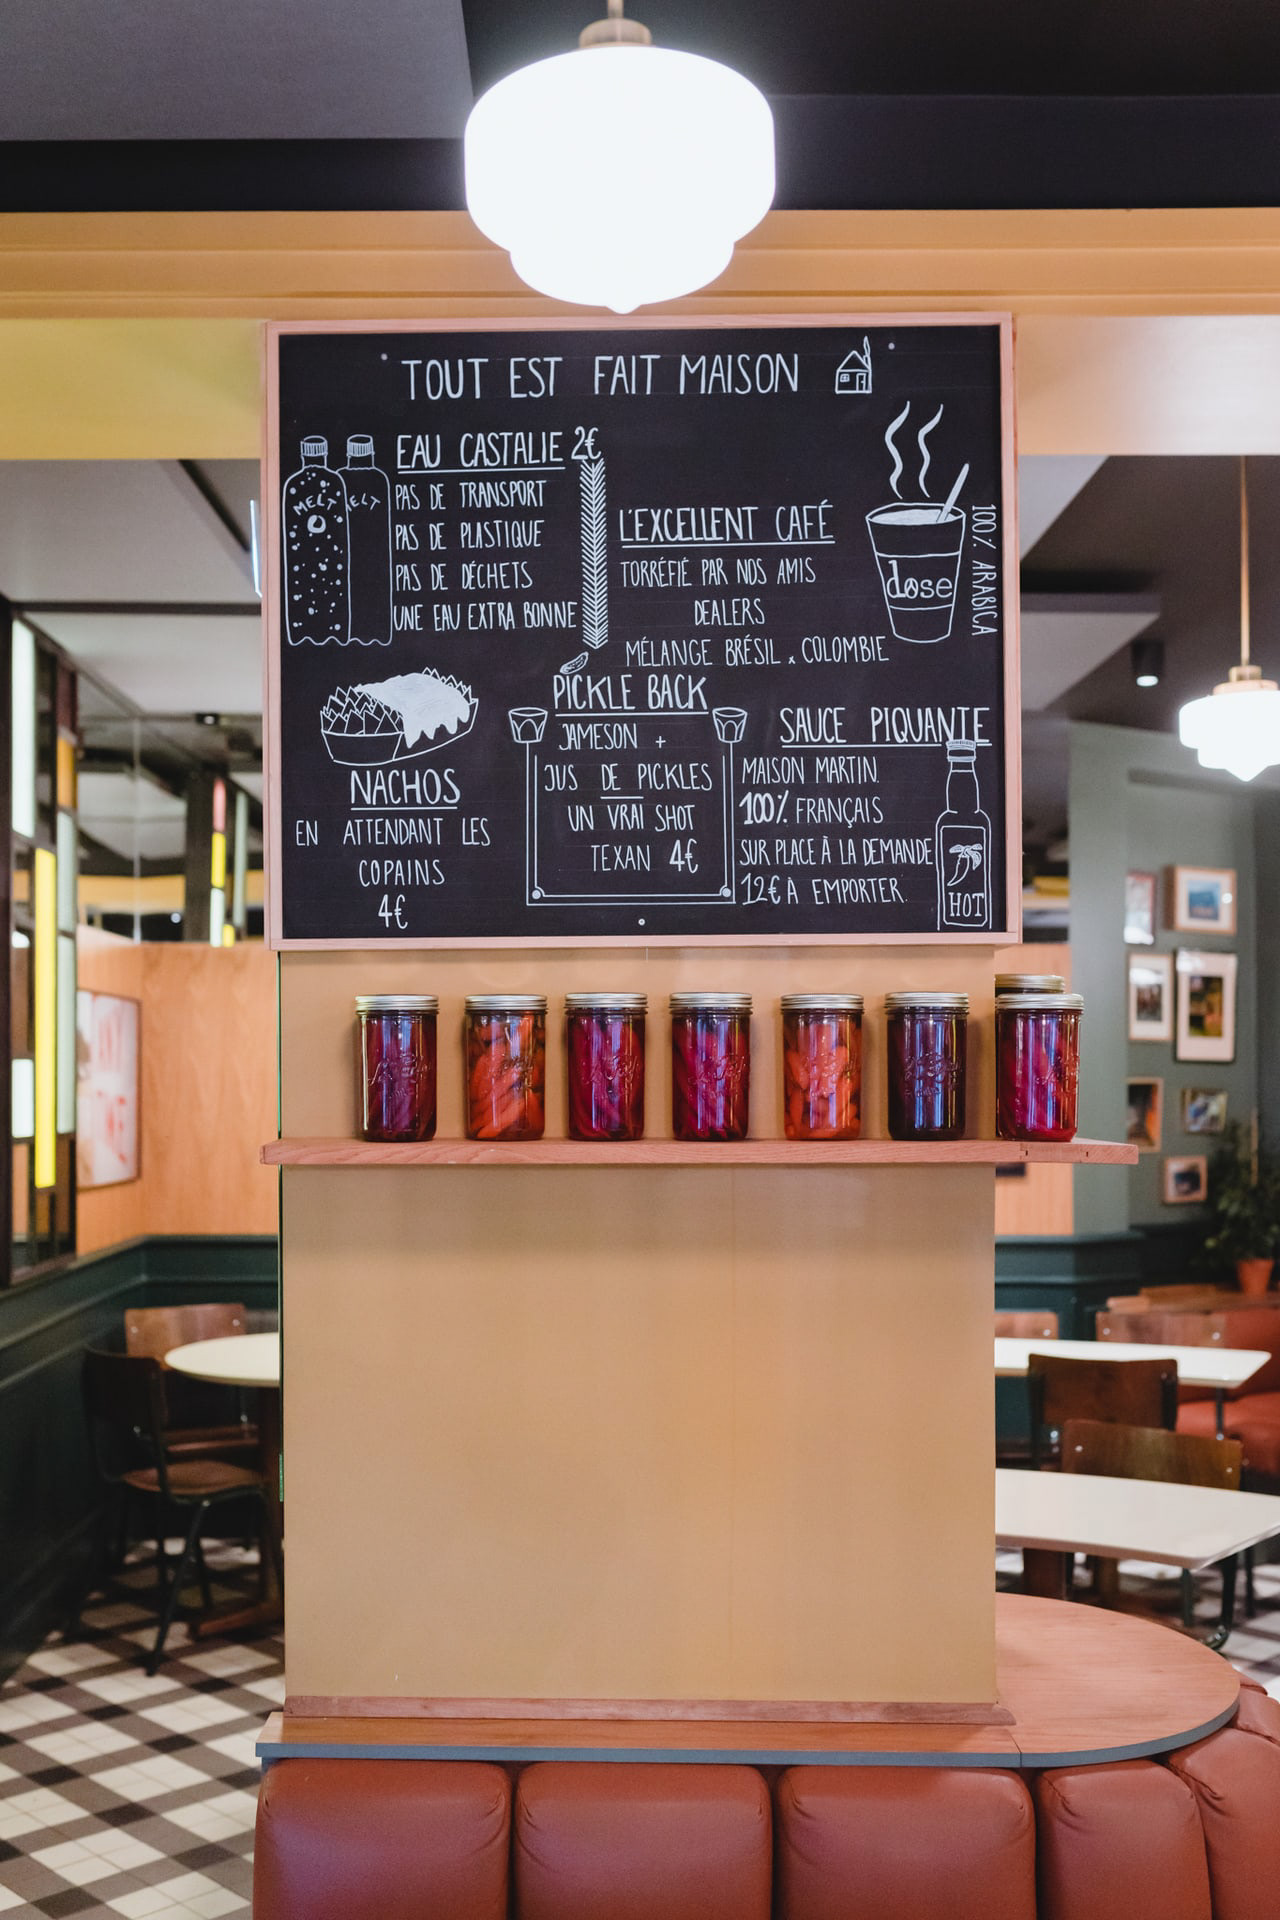 TOUT EST FAIT MAISON
EAU CASTALIE 2€
PAS DE TRANSPORT
PAS DE PLASTIQUE
PAS DE DÉCHETS
UNE EAU EXTRA BONNE
MELT
ELT
L'EXCELLENT CAFÉ
TORRÉFIÉ PAR NOS AMIS
DEALERS
MÉLANGE BRÉSIL x COLOMBIE
dose
100% ARABICA
NACHOS
EN ATTENDANT LES
COPAINS
4€
PICKLE BACK
JAMESON +
JUS DE PICKLES
UN VRAI SHOT
TEXAN 4€
SAUCE PIQUANTE
MAISON MARTIN.
100% FRANÇAIS
SUR PLACE À LA DEMANDE
12€ À EMPORTER.
HOT